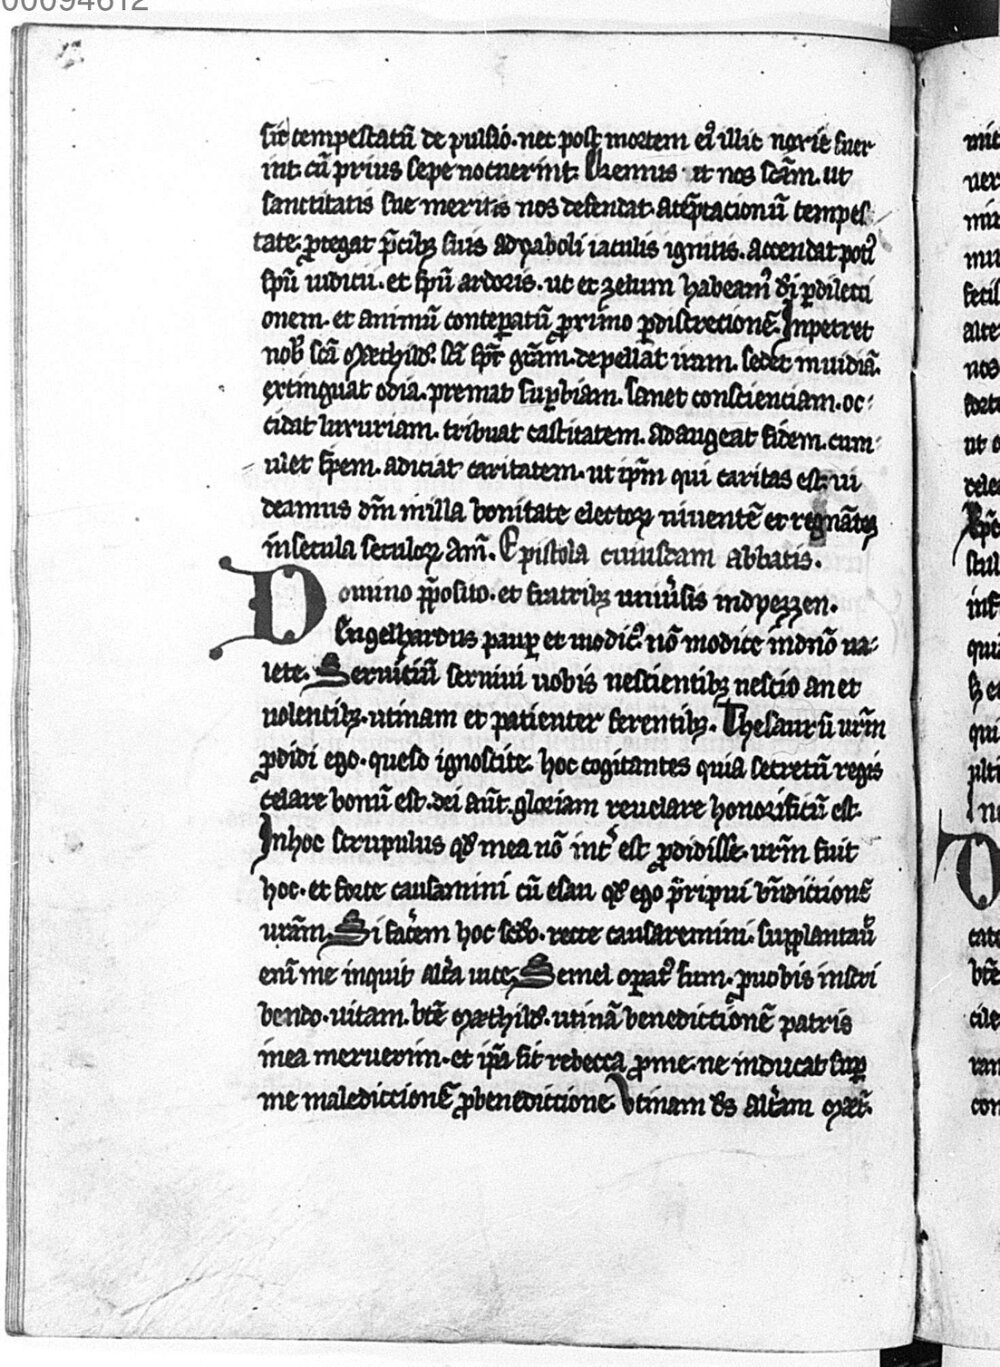 00094612
sit tempestatū de pulsio. nec post mortem eiꝰ illic noxie fuer
int. cū prius sepe nocuerint. Oremus ut nos scām. ut
sanctitatis sue meritis nos defendat. a tēptacionū tempes
tate. ꝓtegat p̄cibꝫ suis a dyaboli iaculis ignitis. accendat
spū iudicii. et spū ardoris. ut et zelum habeamꝰ di ꝑ dilecti
onem. et animū conteꝑatū ꝓximo ꝑ discretionē. Inpetret
nob̄ scā Mæthild. sci spc̄ grām. depellat iram. sedet inuidiā.
extinguat odia. premat suꝑbiam. sanet conscienciam. oc:
cidat luxuriam. tribuat castitatem. adaugeat fidem. cum:
ulet spem. adiciat caritatem. ut ip̄m qui caritas est. ui
deamus dn̄m in illa bonitate electoꝝ uiuentē et regnātē
in secula seculoꝝ am̄. Epistola cuiusdam abbatis.
Domino p̄posito. et fratribꝫ uniūsis in dyezzen.
Engelhardus pauꝑ et modicꝰ nō modice in dn̄o ua:
lete. Seruiciū seruiui uobis nescientibꝫ nescio an et
uolentibꝫ. utinam et patienter ferentibꝫ. Thesaurū ur̄m
ꝓdidi ego. queso ignoscite. hoc cogitantes quia secretū regis
celare bonū est. dei aut̄. gloriam reuelare honorificū est.
In hoc scrupulus qd̄ mea nō int̄ est ꝓdidisse. ur̄m fuit
hoc. et forte causamini cū esau qd̄ ego p̄ripui bn̄dictionē
urām. Si facerem hoc scd̄o. recte causaremini. supplantauit
enī me inquit alt̄a uice. Semel oꝑatꝰ sum. ꝓ uobis inscri
bendo. uitam. btē Mæthild. utinā benedictionē patris
in ea meruerim. et ip̄a sit rebecca ꝓ me. ne inducat suꝑ
me malediccionē ꝓ benediccione. Vtinam ds̄ alt̄am